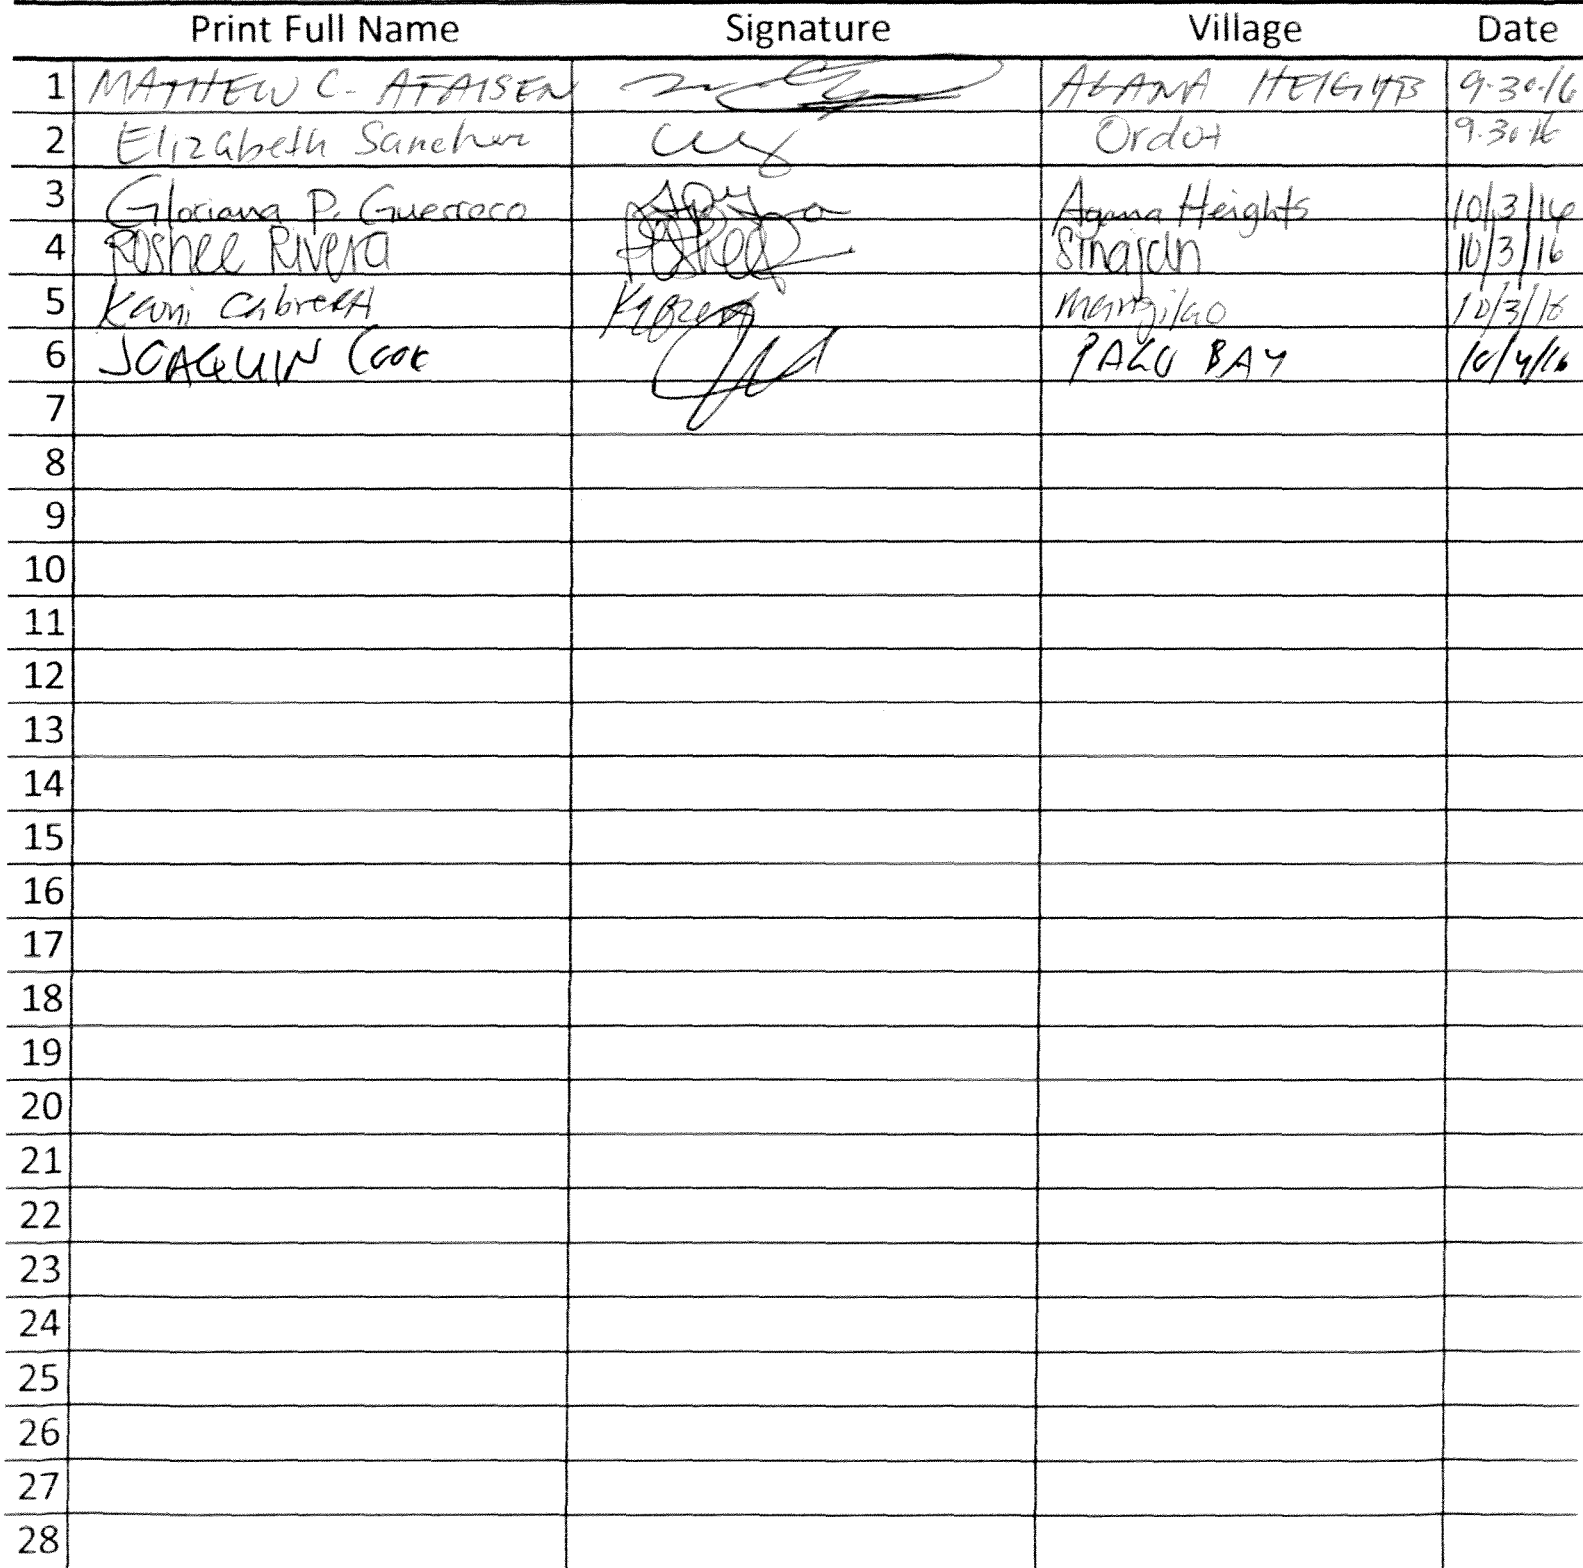 Print Full Name Signature Village Date
1 MATHEW C. ATAISEN AGANA HEIGHTS 9-30-16
2 Elizabeth Sanchez Ordot 9-30-16
3 Gloriana P. Guerrero Agana Heights 10/3/16
4 Roshee Rivera Roshee Sinajan 10/3/16
5 Kani Cabrera Mangilao 10/3/16
6 JOAQUIN Cook PAGO BAY 10/4/16
7
8
9
10
11
12
13
14
15
16
17
18
19
20
21
22
23
24
25
26
27
28